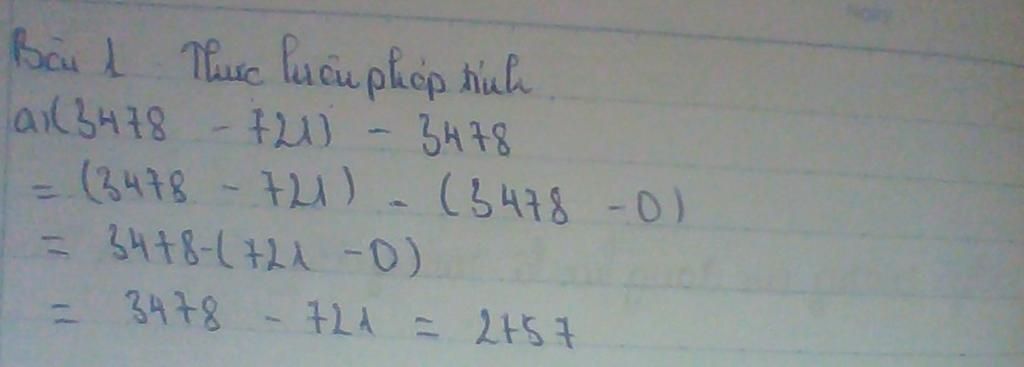 Bài 1 Thực hiện phép tính
a) (3478 - 721) - 3478
= (3478 - 721) - (3478 - 0)
= 3478 - (721 - 0)
= 3478 - 721 = 2757